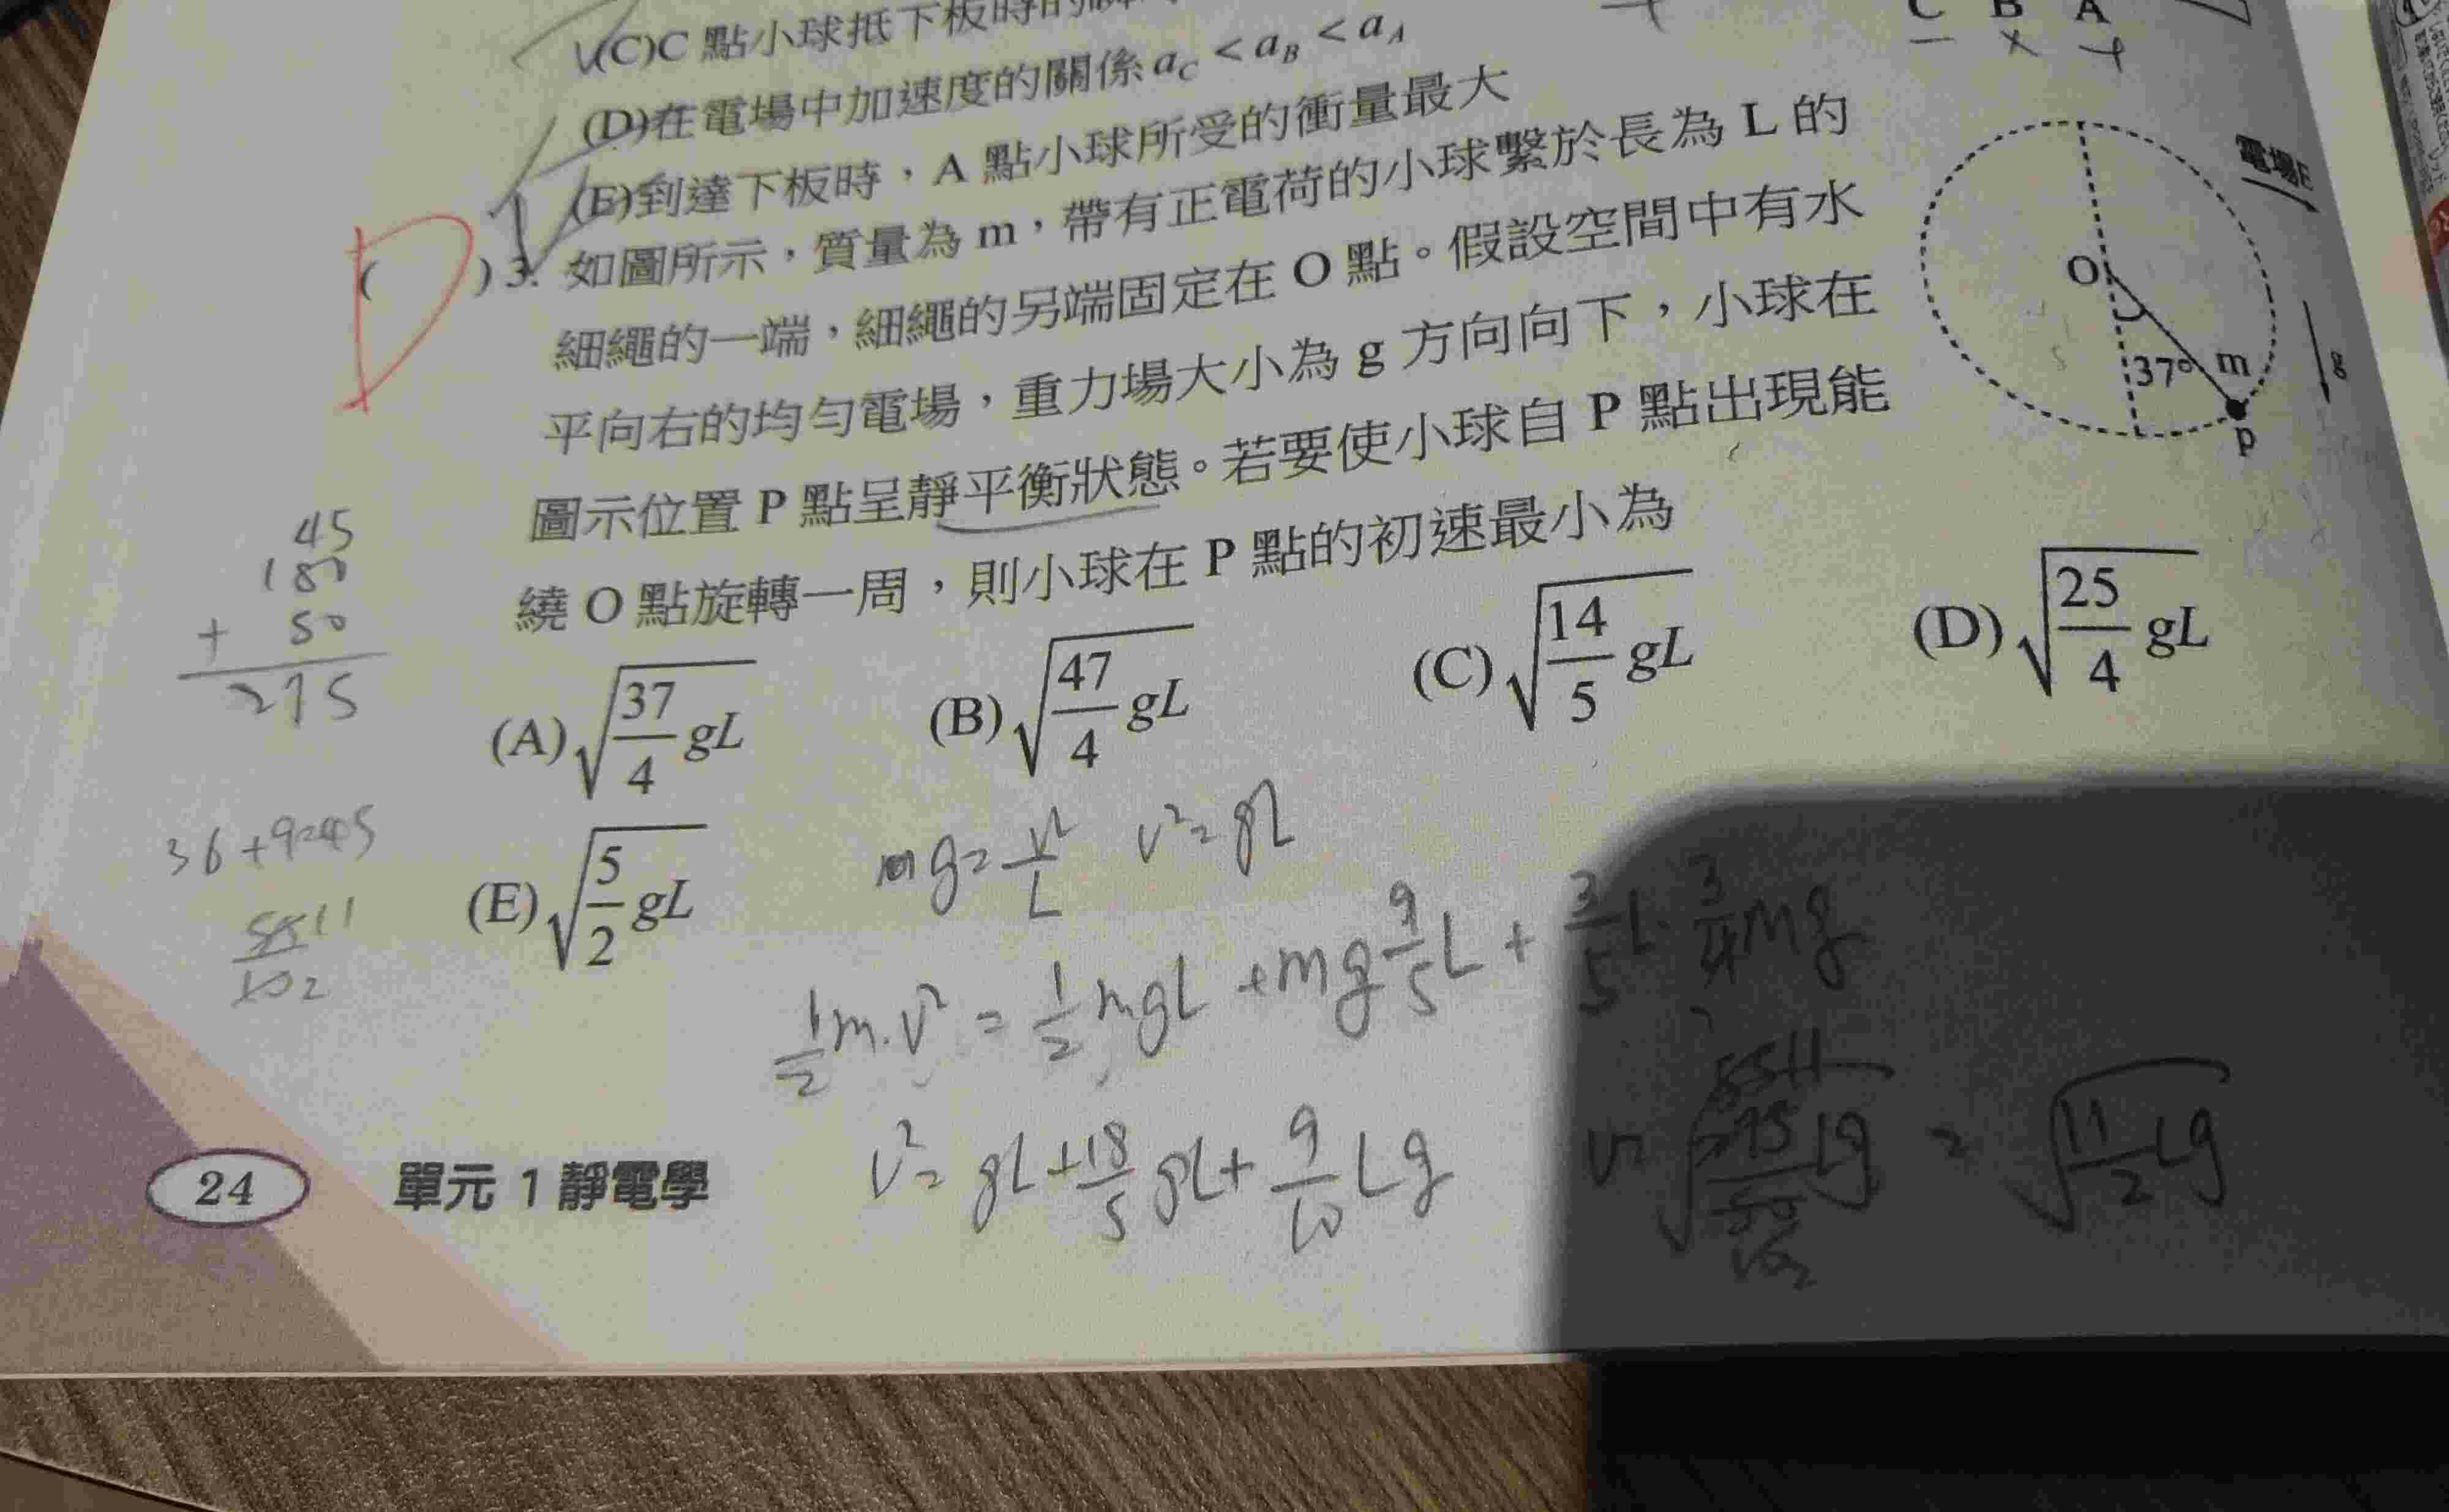 (C)C 點小球抵下板時的
(D)在電場中加速度的關係 a_C < a_B < a_A
(E)到達下板時，A 點小球所受的衝量最大
C B A
( D ) 3. 如圖所示，質量為 m，帶有正電荷的小球繫於長為 L 的
細繩的一端，細繩的另端固定在 O 點。假設空間中有水
平向右的均勻電場，重力場大小為 g 方向向下，小球在
圖示位置 P 點呈靜平衡狀態。若要使小球自 P 點出現能
繞 O 點旋轉一周，則小球在 P 點的初速最小為
電場E
O
37° m
g
P
(A) √(37/4 gL) (B) √(47/4 gL) (C) √(14/5 gL) (D) √(25/4 gL)
(E) √(5/2 gL)
45
180
+ 50
275
36+9=45
55 11
10 2
mg = v²/L v² = gL
1/2 m·v² = 1/2 mgL + mg 9/5 L + 3/5 L · 3/4 mg
v² = gL + 18/5 gL + 9/10 Lg
= √(11/2 Lg)
24 單元 1 靜電學